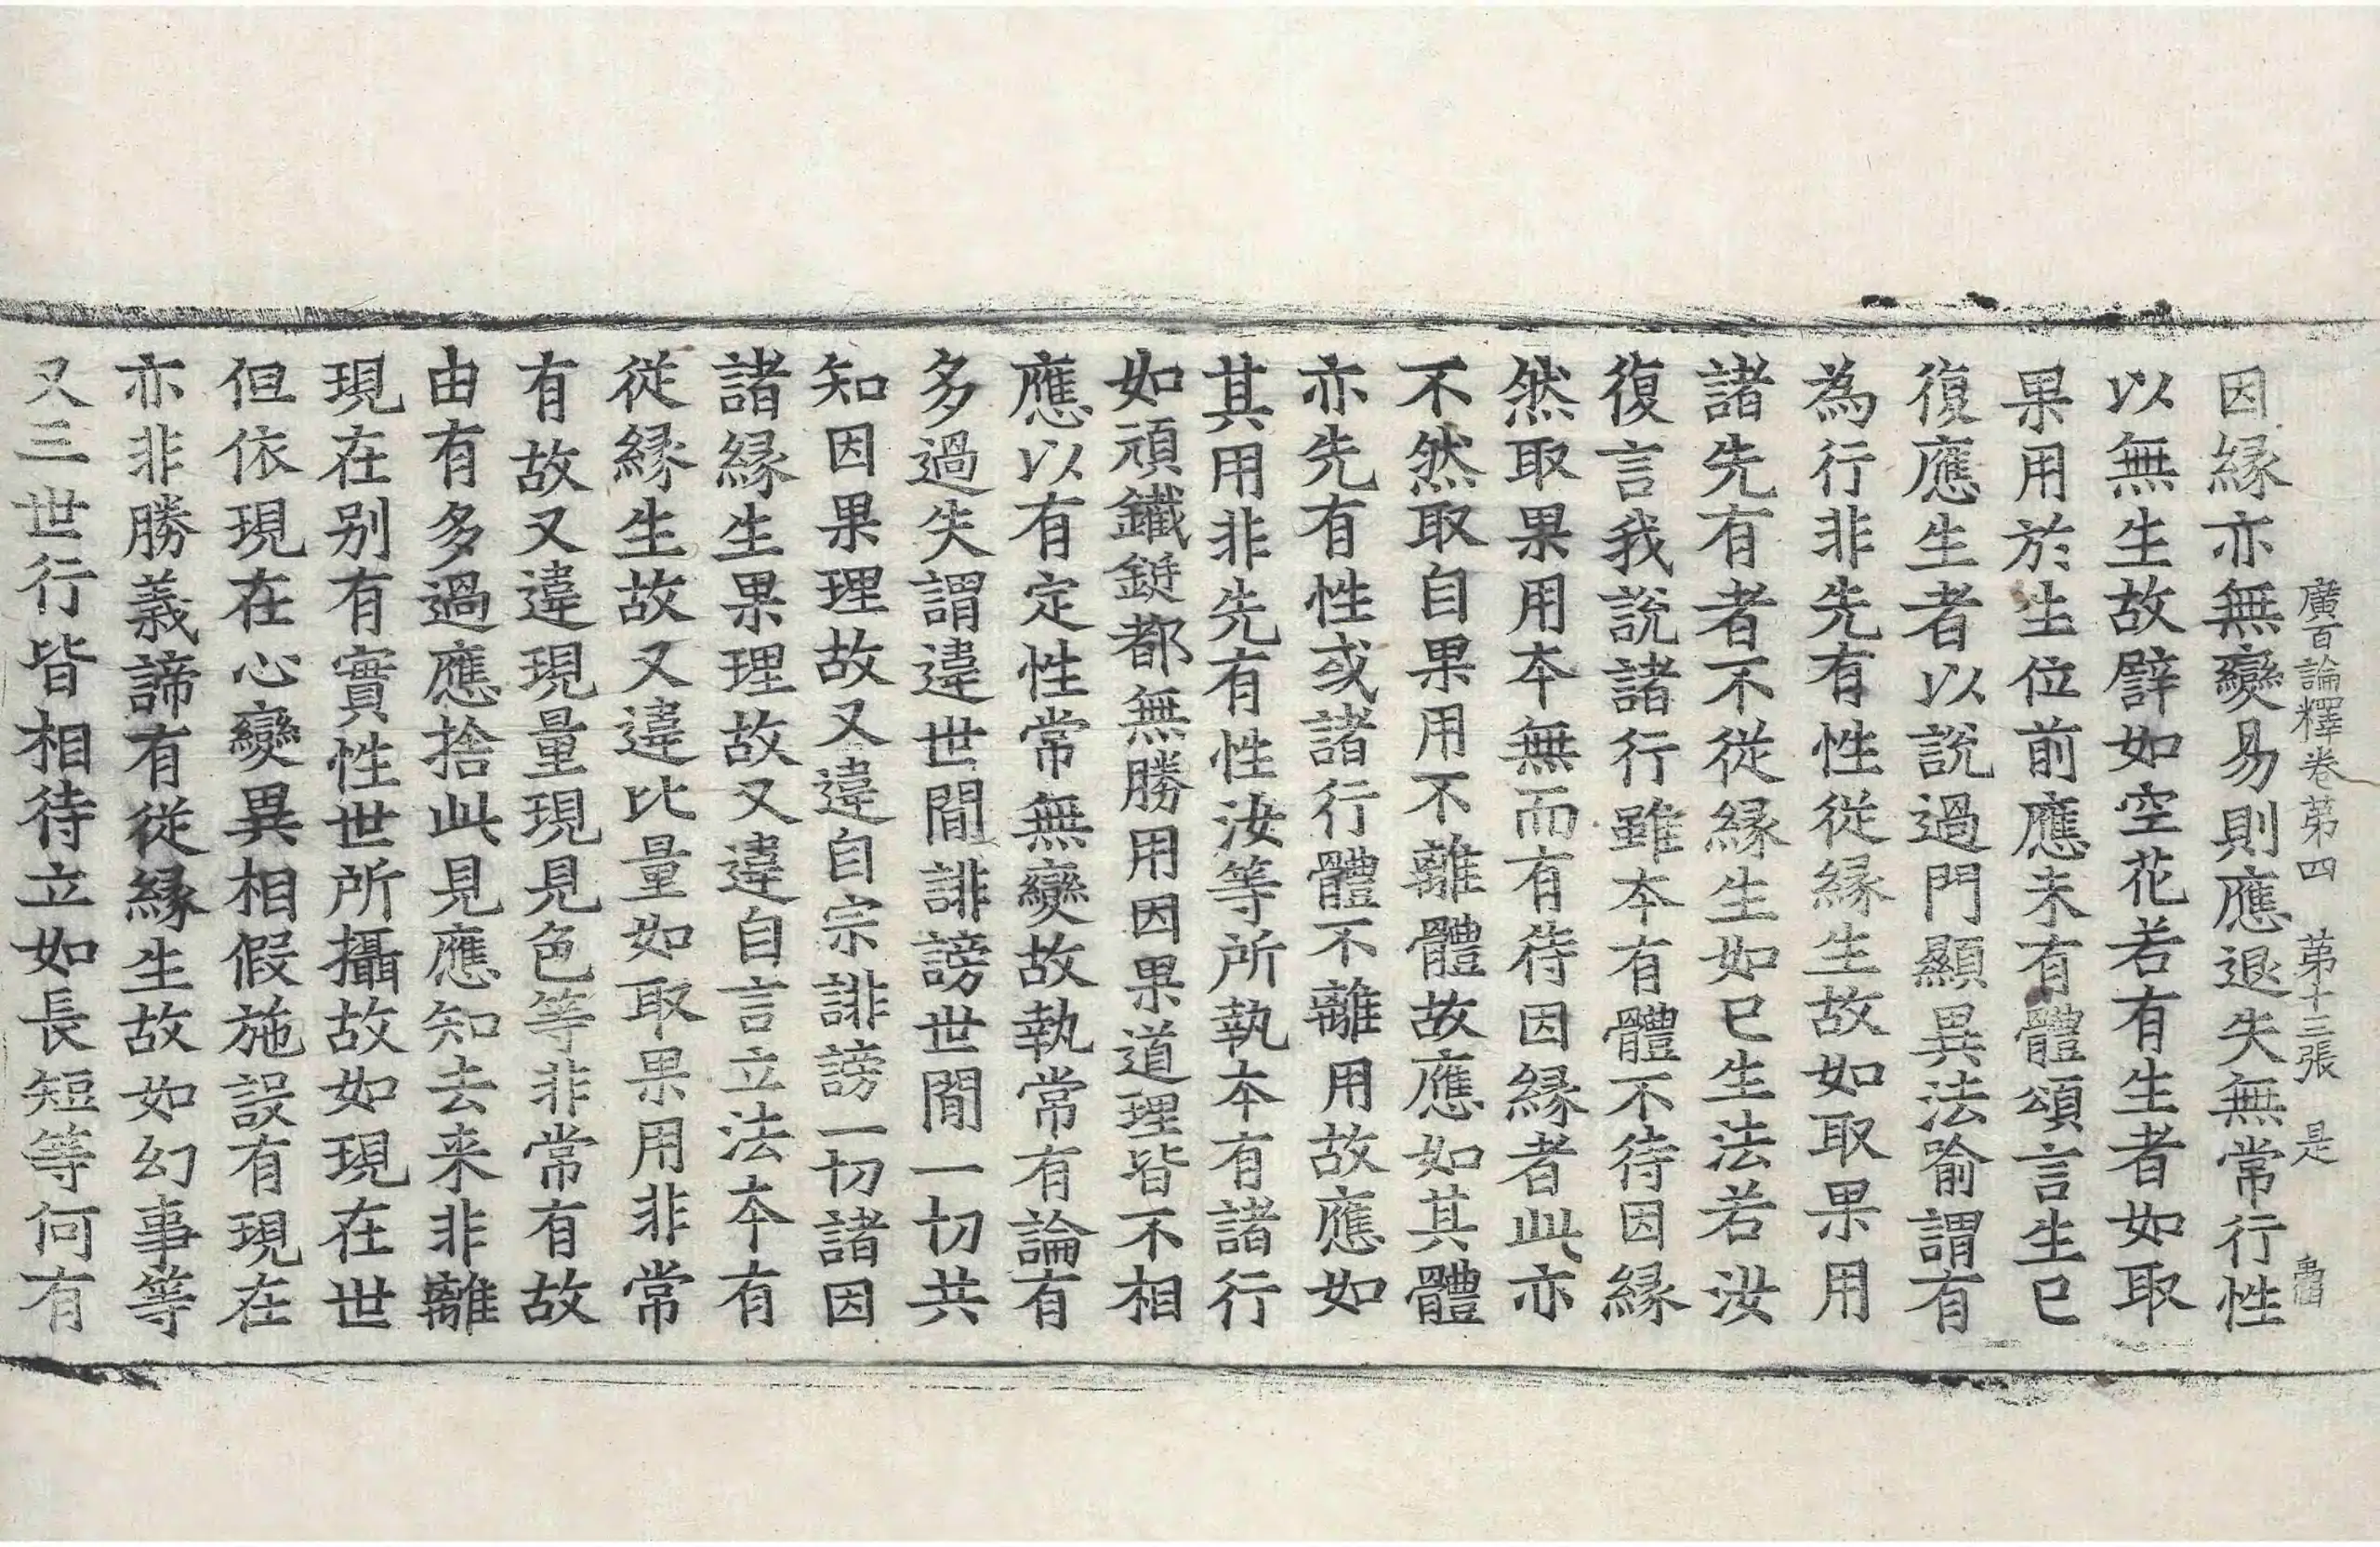 廣百論釋卷第四 第十三張 是
因縁亦無變易則應退失無常行性
以無生故譬如空花若有生者如取
果用於生位前應未有體頌言生已
復應生者以說過門顯異法喻謂有
為行非先有性從縁生故如取果用
諸先有者不從縁生如已生法若汝
復言我說諸行雖本有體不待因縁
然取果用本無而有待因縁者此亦
不然取自果用不離體故應如其體
亦先有性或諸行體不離用故應如
其用非先有性汝等所執本有諸行
如頑鐵鋌都無勝用因果道理皆不相
應以有定性常無變故執常有論有
多過失謂違世間誹謗世間一切共
知因果理故又違自宗誹謗一切諸因
諸縁生果理故又違自言立法本有
從縁生故又違比量如取果用非常
有故又違現量現見色等非常有故
由有多過應捨此見應知去来非離
現在别有實性世所攝故如現在世
但依現在心變異相假施設有現在
亦非勝義諦有從縁生故如幻事等
又三世行皆相待立如長短等何有